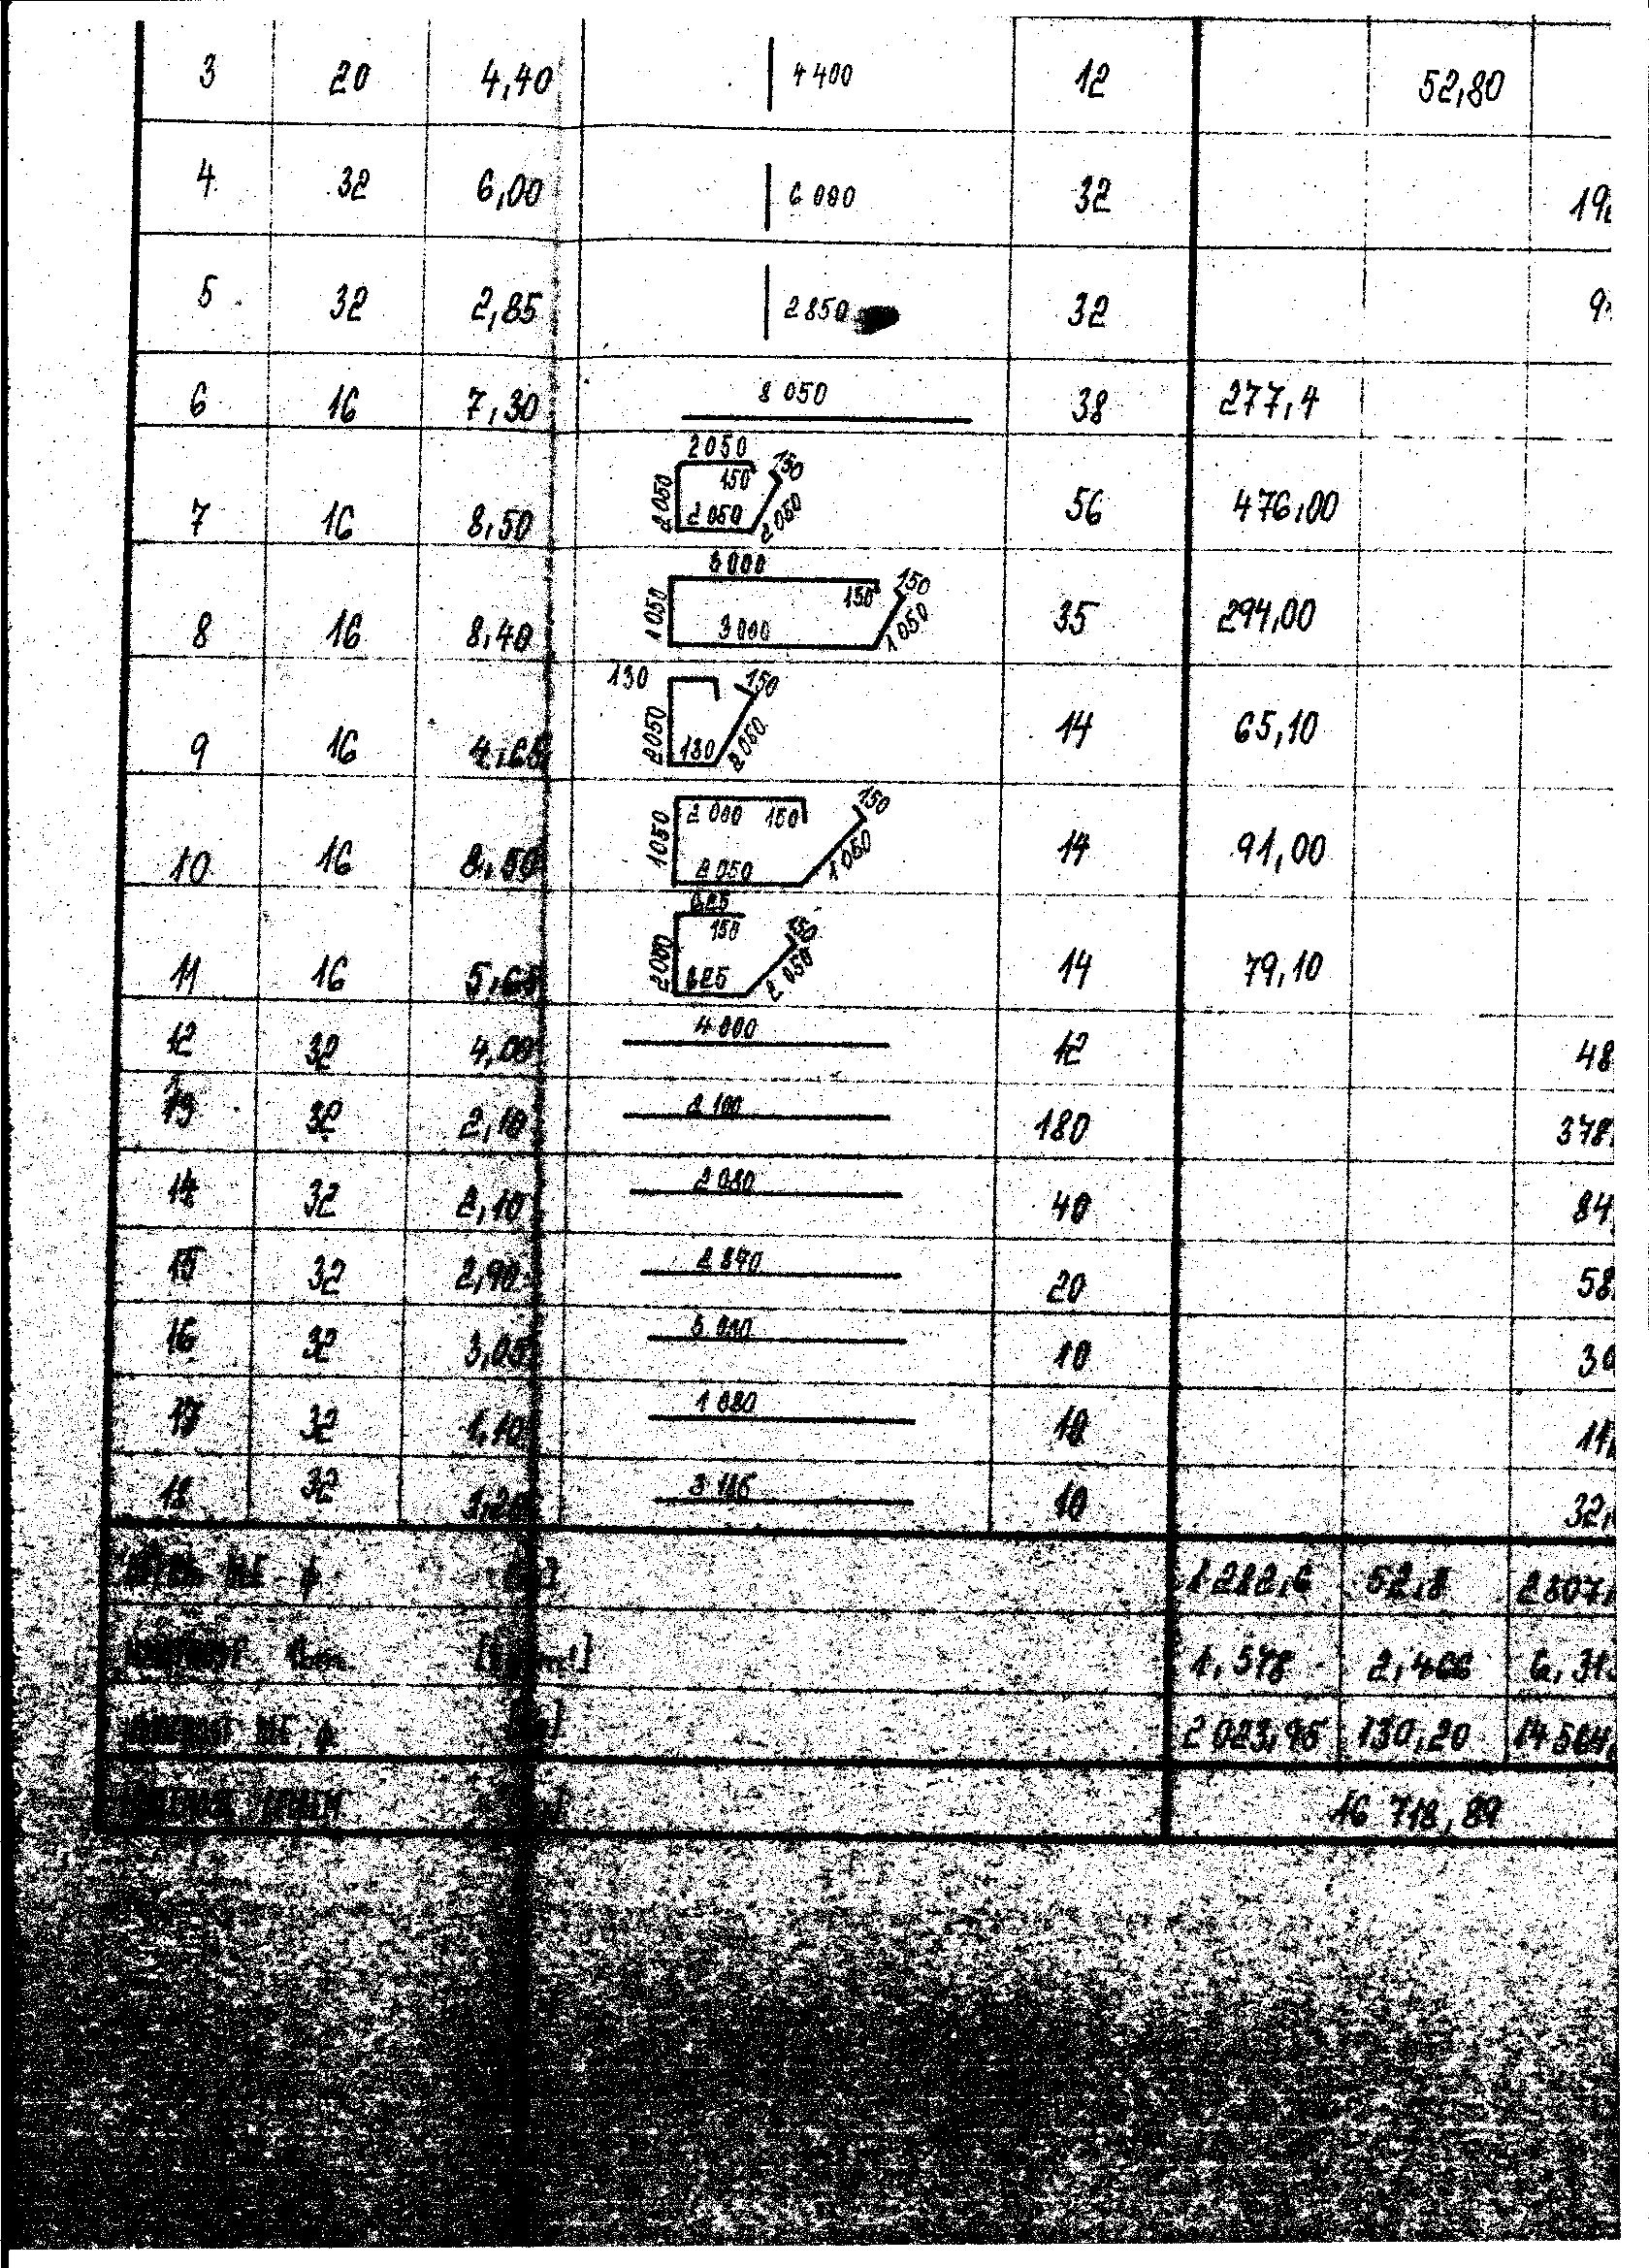 3 20 4,40 4 400 12 52,80
4 32 6,00 6 000 32 19
5 32 2,85 2850 32 9
6 16 7,30 8 050 38 277,4
2050
150 150
7 16 8,50 2050 2 050 2 050 56 476,00
3000
150 150
8 16 8,40 1050 3 000 1 050 35 294,00
130 150
9 16 4,65 2050 130 2 050 14 65,10
2 000 150 150
10 16 1050 2 050 1 050 14 91,00
625
150 150
11 16 5,65 2000 625 2 050 14 79,10
12 32 4,00 4 000 12 48
13 32 2,10 2 100 180 378
14 32 2,10 2 080 40 84
15 32 2,90 2 870 20 58
16 32 3,05 10 30
17 32 1,10 1 080 10 11
18 32 10 32,
1 282,6 52,8 2307,
1,578 2,466 6,313
2 023,95 130,20 14 564,
16 718,89